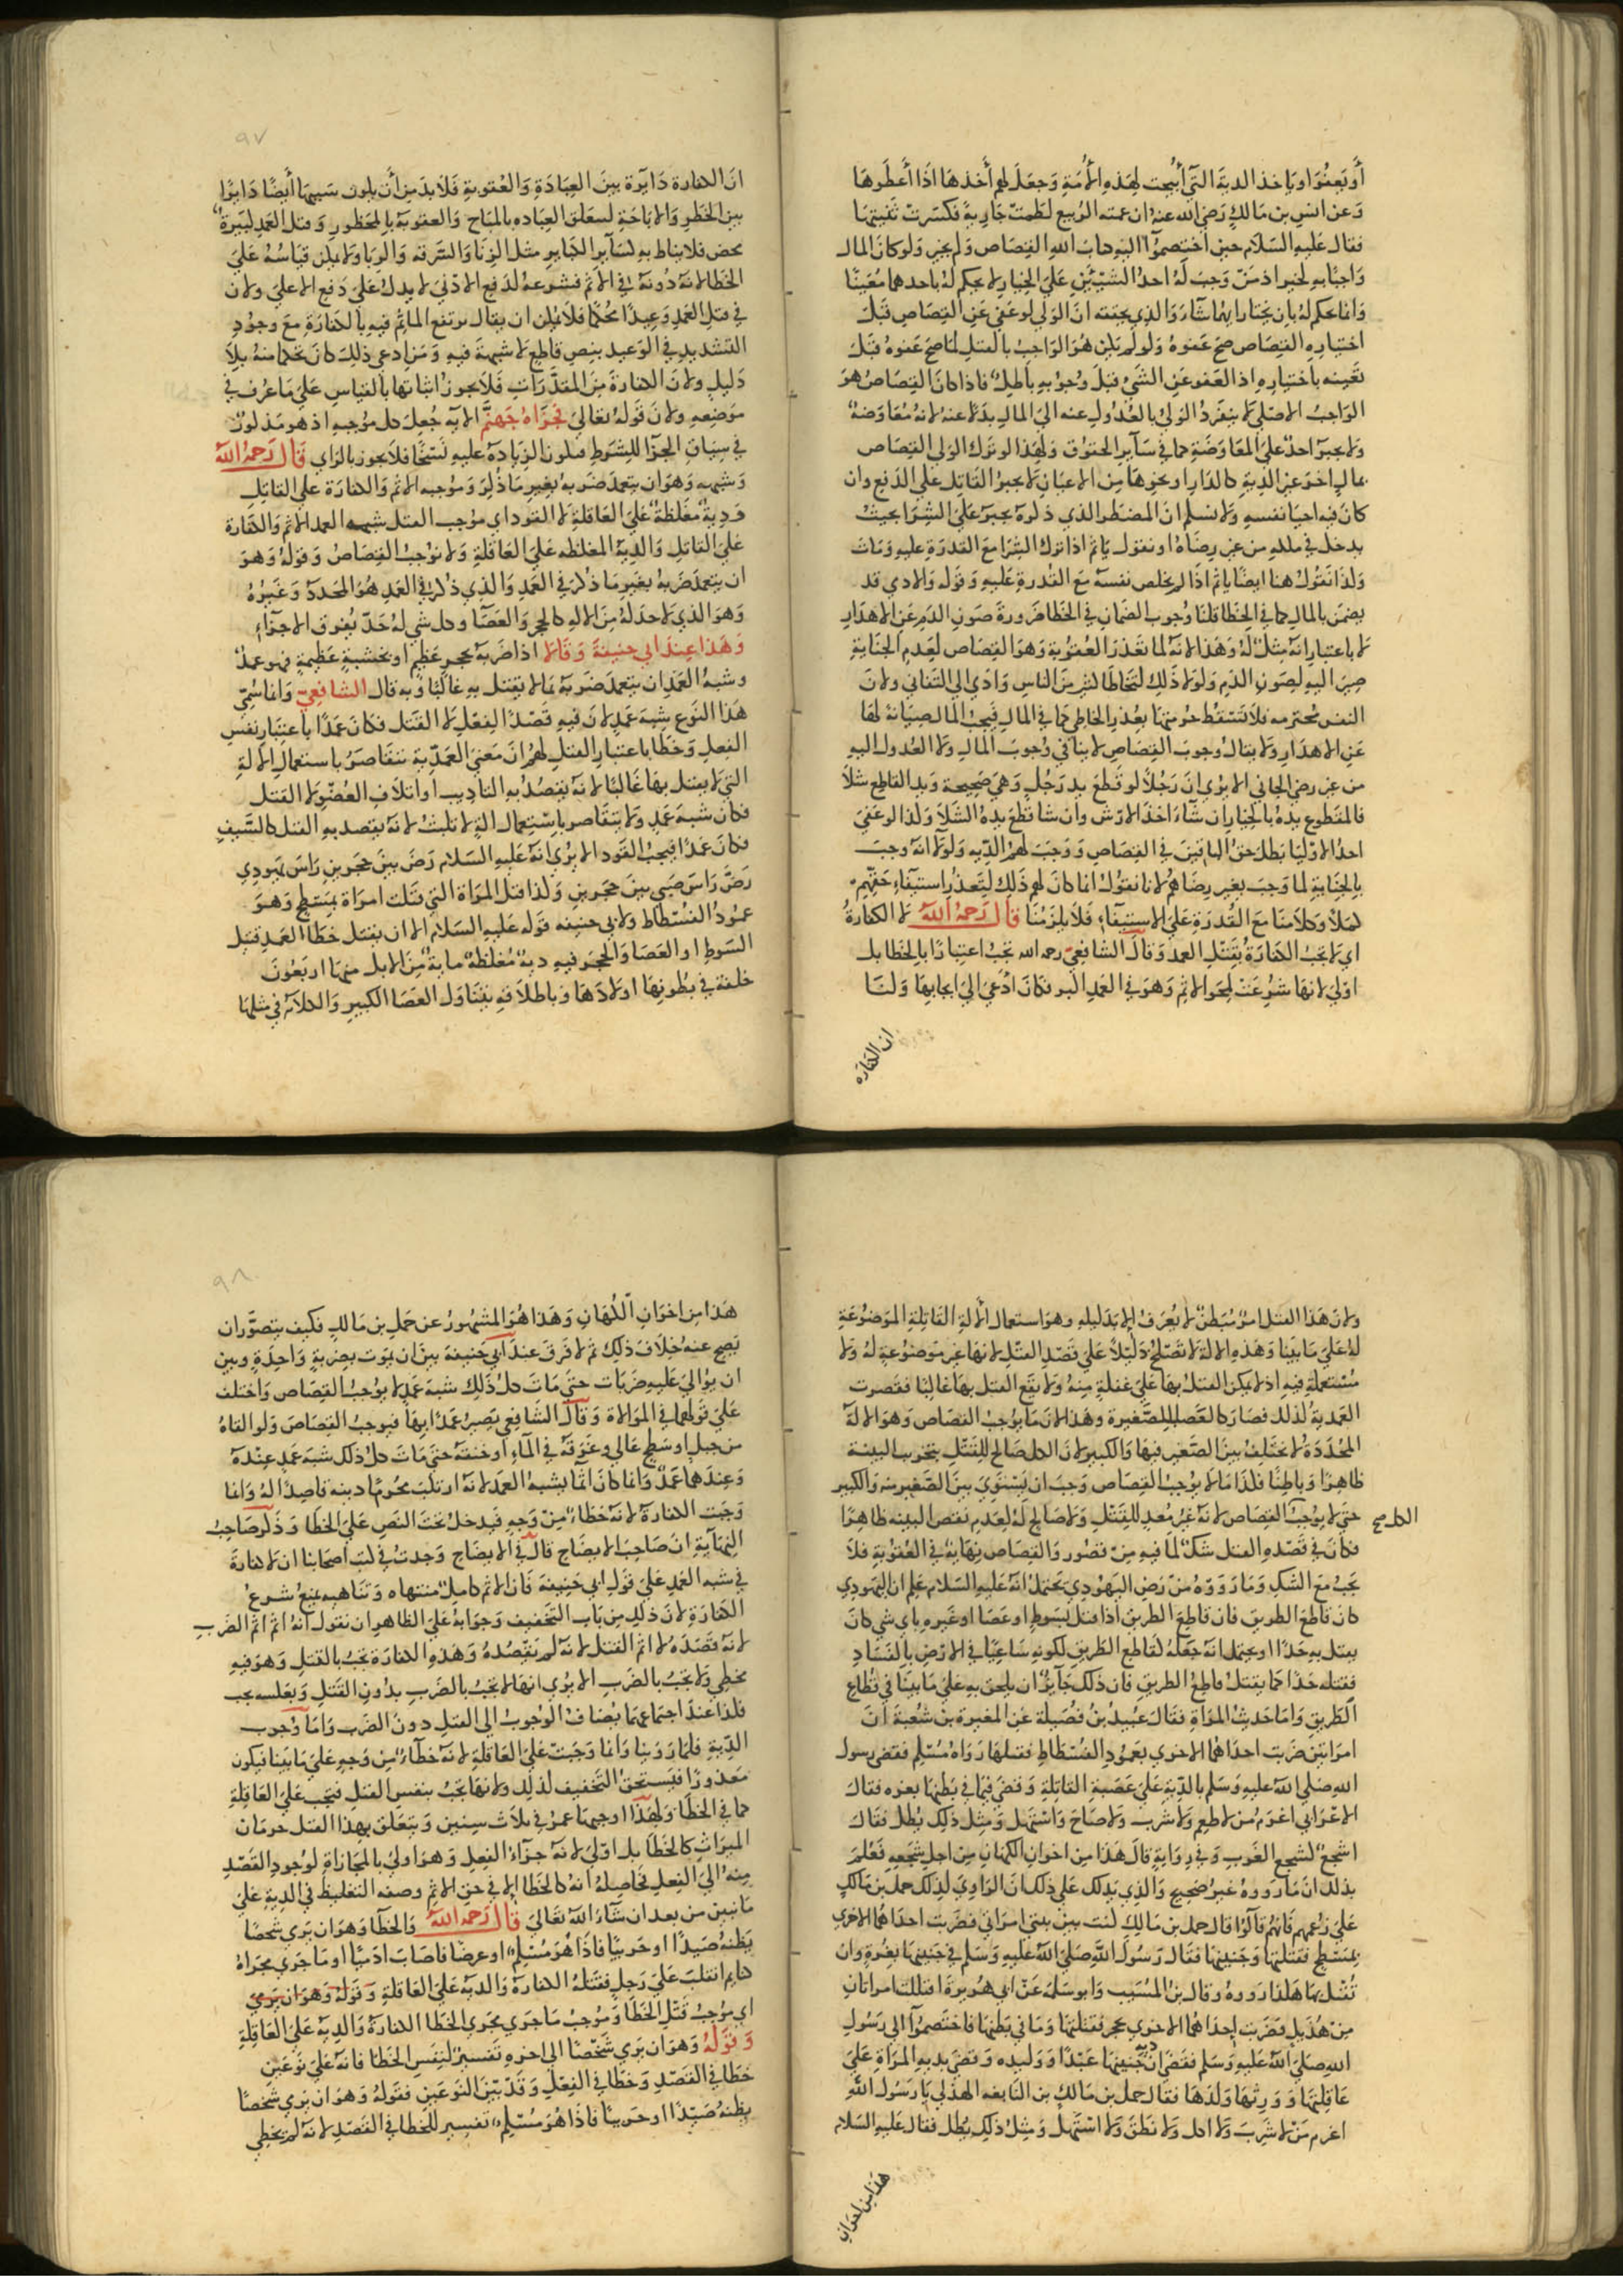 أو يعفوا او ياخذ الدية التي أبيحت لهذه الأمة وجعل لهم أخذها اذا أعطوها
وعن انس بن مالك رضي الله عنه ان عمته الربيع لطمت جارية فكسرت ثنيتها
فقال عليه السلام حين اختصموا اليه كتاب الله القصاص ولم يخير ولو كان المال
واجبا به لخير اذ من وجب له احد الشيئين على الخيار لا يحكم له باحدهما معينا
وانما يحكم له بان يختار ايهما شاء والذي يحققه ان الولي لو عفى عن القصاص قبل
اختياره القصاص صح عفوه ولو لم يكن هو الواجب بالقتل لما صح عفوه قبل
تعينه باختياره اذ العفو عن الشي قبل وجوبه باطل فاذا كان القصاص هو
الواجب الاصلي لا ينفرد الولي بالعدول عنه الى المال بدلا عنه لانه معاوضة
ولا يجبر احد على المعاوضة كما في ساير الحقوق ولهذا لو ترك الولي القصاص
بمال اخر غير الدية كالدار او نحوها من الاعيان لا يجبر القاتل على الدفع وان
كان فيه احيا نفسه ولا نسلم ان المضطر الذي ذكره يجبر على الشرا بحيث
يدخل في ملكه من غير رضاه او نقول ياثم اذا ترك الشرا مع القدرة عليه ومات
ولذا نقول هنا ايضا ياثم اذا لم يخلص نفسه مع القدرة عليه وقوله والادمي قد
يضمن بالمال كما في الخطا قلنا وجوب الضمان في الخطا ضرورة صون الدم عن الاهدار
لا باعتبار انه مثل له وهذا لانه لما تعذر العقوبة وهو القصاص لعدم الجناية
صير اليه لصون الدم ولولا ذلك لتخاطا كثير من الناس وادى الى التفاني ولان
النفس محترمه فلا تسقط حرمتها بعذر الخاطي كما في المال فيجب المال صيانة لها
عن الاهدار ولا يقال وجوب القصاص لا ينافي وجوب المال ولا العدول اليه
من غير رضى الجاني الا يرى ان رجلا لو قطع يد رجل وهي صحيحة ويد القاطع شلا
فالمقطوع يده بالخيار ان شاء اخذ الارش وان شا قطع يده الشلا ولذا لو عفى
احد الاوليا بطل حق الباقين في القصاص ووجب لهم الديه ولولا انه وجب
بالجناية لما وجب بغير رضاهم لانا نقول انما كان لهم ذلك لتعذر استيفاء حقهم
كملا وكلامنا مع القدرة على الاستيفاء فلا يلزمنا قال رحمه الله لا الكفارة
اي لا تجب الكفارة بقتل العمد وقال الشافعي رحمه الله تجب اعتبارا بالخطا بل
اولى لانها شرعت لمحو الاثم وهو في العمد اكبر فكان ادعى الى ايجابها ولنا
ان الكفاره
٩٧
ان الكفارة دايرة بين العبادة والعقوبة فلا بد من أن يكون سببها أيضا دايرا
بين الحظر والاباحة لتعلق العباده بالمباح والعقوبة بالمحظور وقتل العمد كبيرة
محض فلا يناط به كساير الكباير مثل الزنا والسرقه والربا ولا يمكن قياسه على
الخطا لانه دونه في الاثم فشرعه لدفع الادنى لا يدل على دفع الاعلى ولان
في قتل العمد وعيدا محكما فلا يمكن ان يقال يرتفع الماثم فيه بالكفارة مع وجود
التشديد في الوعيد بنص قاطع لا شبهة فيه ومن ادعى ذلك كان تحكما منه بلا
دليل ولان الكفارة من المقدرات فلا يجوز اثباتها بالقياس على ما عرف في
موضعه ولان قوله تعالى فجزاه جهنم الايه جعل كل موجبه اذ هو مذكور
في سياق الجزا للشرط فتكون الزيادة عليه نسخا فلا يجوز بالراي قال رحمه الله
وشبهه وهو ان يتعمد ضربه بغير ما ذكر وموجبه الاثم والكفارة على القاتل
ودية مغلظة على العاقلة لا القود اي موجب القتل شبه العمد الاثم والكفارة
على القاتل والدية المغلظه على العاقلة ولا يوجب القصاص وقوله وهو
ان يتعمد ضربه بغير ما ذكر في العمد والذي ذكره في العمد هو المحدد وغيره
وهو الذي لا حد له من الاله كالحجر والعصا وكل شي له حد يفرق الاجزاء
وهذا عند ابي حنيفة وقالا اذا ضربه بحجر عظيم او بخشبة عظيمة فهو عمد
وشبه العمد ان يتعمد ضربه بما لا يقتل به غالبا وبه قال الشافعي وانما سمي
هذا النوع شبه عمد لان فيه قصد الفعل لا القتل فكان عمدا باعتبار نفس
الفعل وخطا باعتبار القتل لهم ان معنى العمدية يتقاصر باستعمال الالة
التي لا يقتل بها غالبا لانه يقصد به التاديب او اتلاف العضو لا القتل
فكان شبه عمد ولا يتقاصر باستعمال الة لا تلبث لانه يقصد به القتل كالسيف
فكان عمدا فيجب القود الا يرى انه عليه السلام رض بين حجرين راس يهودي
رض راس صبي بين حجرين ولذا قتل المراة التي قتلت امراة بمسطح وهو
عمود الفسطاط ولابي حنيفه قوله عليه السلام الا ان قتيل خطا العمد قتيل
السوط او العصا والحجر فيه دية مغلظة ماية من الابل منها اربعون
خلفة في بطونها اولادها وباطلاقه يتناول العصا الكبير والكلام في مثلها
ولان هذا القتل امر مبطن لا يعرف الا بدليله وهو استعمال الالة القاتلة الموضوعة
له على ما بينا وهذه الالة لا تصلح دليلا على قصد القتل لانها غير موضوعة له ولا
مستعملة فيه اذ لا يمكن القتل بها على غفلة منه ولا يقع القتل بها غالبا فقصرت
العمدية لذلك فصار كالعصا الصغيرة وهذا لان ما يوجب القصاص وهو الالة
المحددة لا يختلف بين الصغير فيها والكبير لان الكل صالح للقتل بتخريب البنية
ظاهرا وباطنا فلذا ما لا يوجب القصاص وجب ان يستوي بين الصغير منه والكبير
حتى لا يوجب الكل القصاص لانه غير معد للقتل ولا صالح له لعدم نقض البنيه ظاهرا
الكل صح
فكان في قصده القتل شك لما فيه من قصور والقصاص نهاية في العقوبة فلا
يجب مع الشك وما رووه من رض اليهودي يحتمل انه عليه السلام علم ان اليهودي
كان قاطع الطريق فان قاطع الطريق اذا قتل بسوط او عصا او غيره باي شي كان
يقتل به حدا او يحتمل انه جعله كقاطع الطريق لكونه ساعيا في الارض بالفساد
فقتله حدا كما يقتل قاطع الطريق فان ذلك جايز ان يلحق به على ما بينا في قطاع
الطريق واما حديث المراة فقال عبيد بن فضيلة عن المغيرة بن شعبة ان
امراتين ضربت احداهما الاخرى بعمود الفسطاط فقتلها رواه مسلم فقضى رسول
الله صلى الله عليه وسلم بالدية على عصبة القاتلة وقضى فيما في بطنها بغره فقال
الاعرابي اغرم من لا طعم ولا شرب ولا صاح واستهل ومثل ذلك يطل فقال
اسجع كسجع العرب وفي رواية قال هذا من اخوان الكهان من اجل سجعه فعلم
بذلك ان ما رووه غير صحيح والذي يدلك على ذلك ان الراوي لذلك حمل بن مالك
على زعمهم فانهم قالوا قال حمل بن مالك كنت بين بيتي امراتي فضربت احداهما الاخرى
بمسطح فقتلتها وجنينها فقال رسول الله صلى الله عليه وسلم في جنينها بغرة وان
تقتل بها هكذا رووه وقال بن المسيب وابو سلمة عن ابي هريرة اقتتلت امراتان
من هذيل فضربت احداهما الاخرى بحجر فقتلتها وما في بطنها فاختصموا الى رسول
الله صلى الله عليه وسلم فقضى ان دية جنينها عبدا ووليده وقضى بدية المراة على
عاقلتها وورثها ولدها فقال حمل بن مالك بن النابغه الهذلي يا رسول الله
اغرم من لا شرب ولا اكل ولا نطق ولا استهل ومثل ذلك يطل فقال عليه السلام
هذا من اخوان
٩٨
هذا من اخوان الكهان وهذا هو المشهور عن حمل بن مالك فكيف يتصور ان
يصح عنه خلاف ذلك ثم لا فرق عند ابي حنيفة بين ان يموت بضربة واحدة وبين
ان يوالي عليه ضربات حتى مات كل ذلك شبه عمد لا يوجب القصاص واختلف
على قولهما في الموالاة وقال الشافعي يصير عمدا بها فيوجب القصاص ولو القاه
من جبل او سطح عالي وغرقه في الماء او خنقه حتى مات كل ذلك شبه عمد عنده
وعندهما عمد وانما كان اثما بشبه العمد لانه ارتكب محرم دينه قاصدا له وانما
وجبت الكفارة لانه خطاء من وجه فيدخل تحت النص على الخطا وذكر صاحب
النهاية ان صاحب الايضاح قال في الايضاح وجدت في كتب اصحابنا ان لا كفارة
في شبه العمد على قول ابي حنيفة فان الاثم كامل متناه وتناهيه يمنع شرع
الكفارة لان ذلك من باب التخفيف وجوابه على الظاهر ان نقول انه اثم اثم الضرب
لانه قصده لا اثم القتل لانه لم يقصده وهذه الكفارة تجب بالقتل وهو فيه
مخطي ولا تجب بالضرب الا يرى انها لا تجب بالضرب بدون القتل وبعكسه يجب
فلذا عند اجتماعهما يضاف الوجوب الى القتل دون الضرب واما وجوب
الدية فلما روينا وانما وجبت على العاقلة لانه خطاء من وجه على ما بينا فيكون
معذورا فيستحق التخفيف لذلك ولانها تجب بنفس القتل فتجب على العاقلة
كما في الخطا ولهذا اوجبها عمر في ثلاث سنين ويتعلق بهذا القتل حرمان
الميراث كالخطا بل اولى لانه جزاء الفعل وهو اولى بالمجازاة لوجود القصد
منه الى الفعل فحاصله انه كالخطا الا في حق الاثم وصفه التغليظ في الدية على
ما نبين من بعد ان شاء الله تعالى قال رحمه الله والخطا وهو ان يرمي شخصا
يظنه صيدا او حربيا فاذا هو مسلم او عرضا فاصاب ادميا او ما جرى مجراه
كنايم انقلب على رجل فقتله الكفارة والدية على العاقلة وقوله وهو ان يرمي
اي موجب قتل الخطا وموجب ما جرى مجرى الخطا الكفارة والدية على العاقلة
وقوله وهو ان يرمي شخصا الى اخره تفسير لنفس الخطا فانه على نوعين
خطا في القصد وخطا في الفعل وقد بين النوعين فقوله وهو ان يرمي شخصا
يظنه صيدا او حربيا فاذا هو مسلم تفسير للخطا في القصد لانه لم يخطي